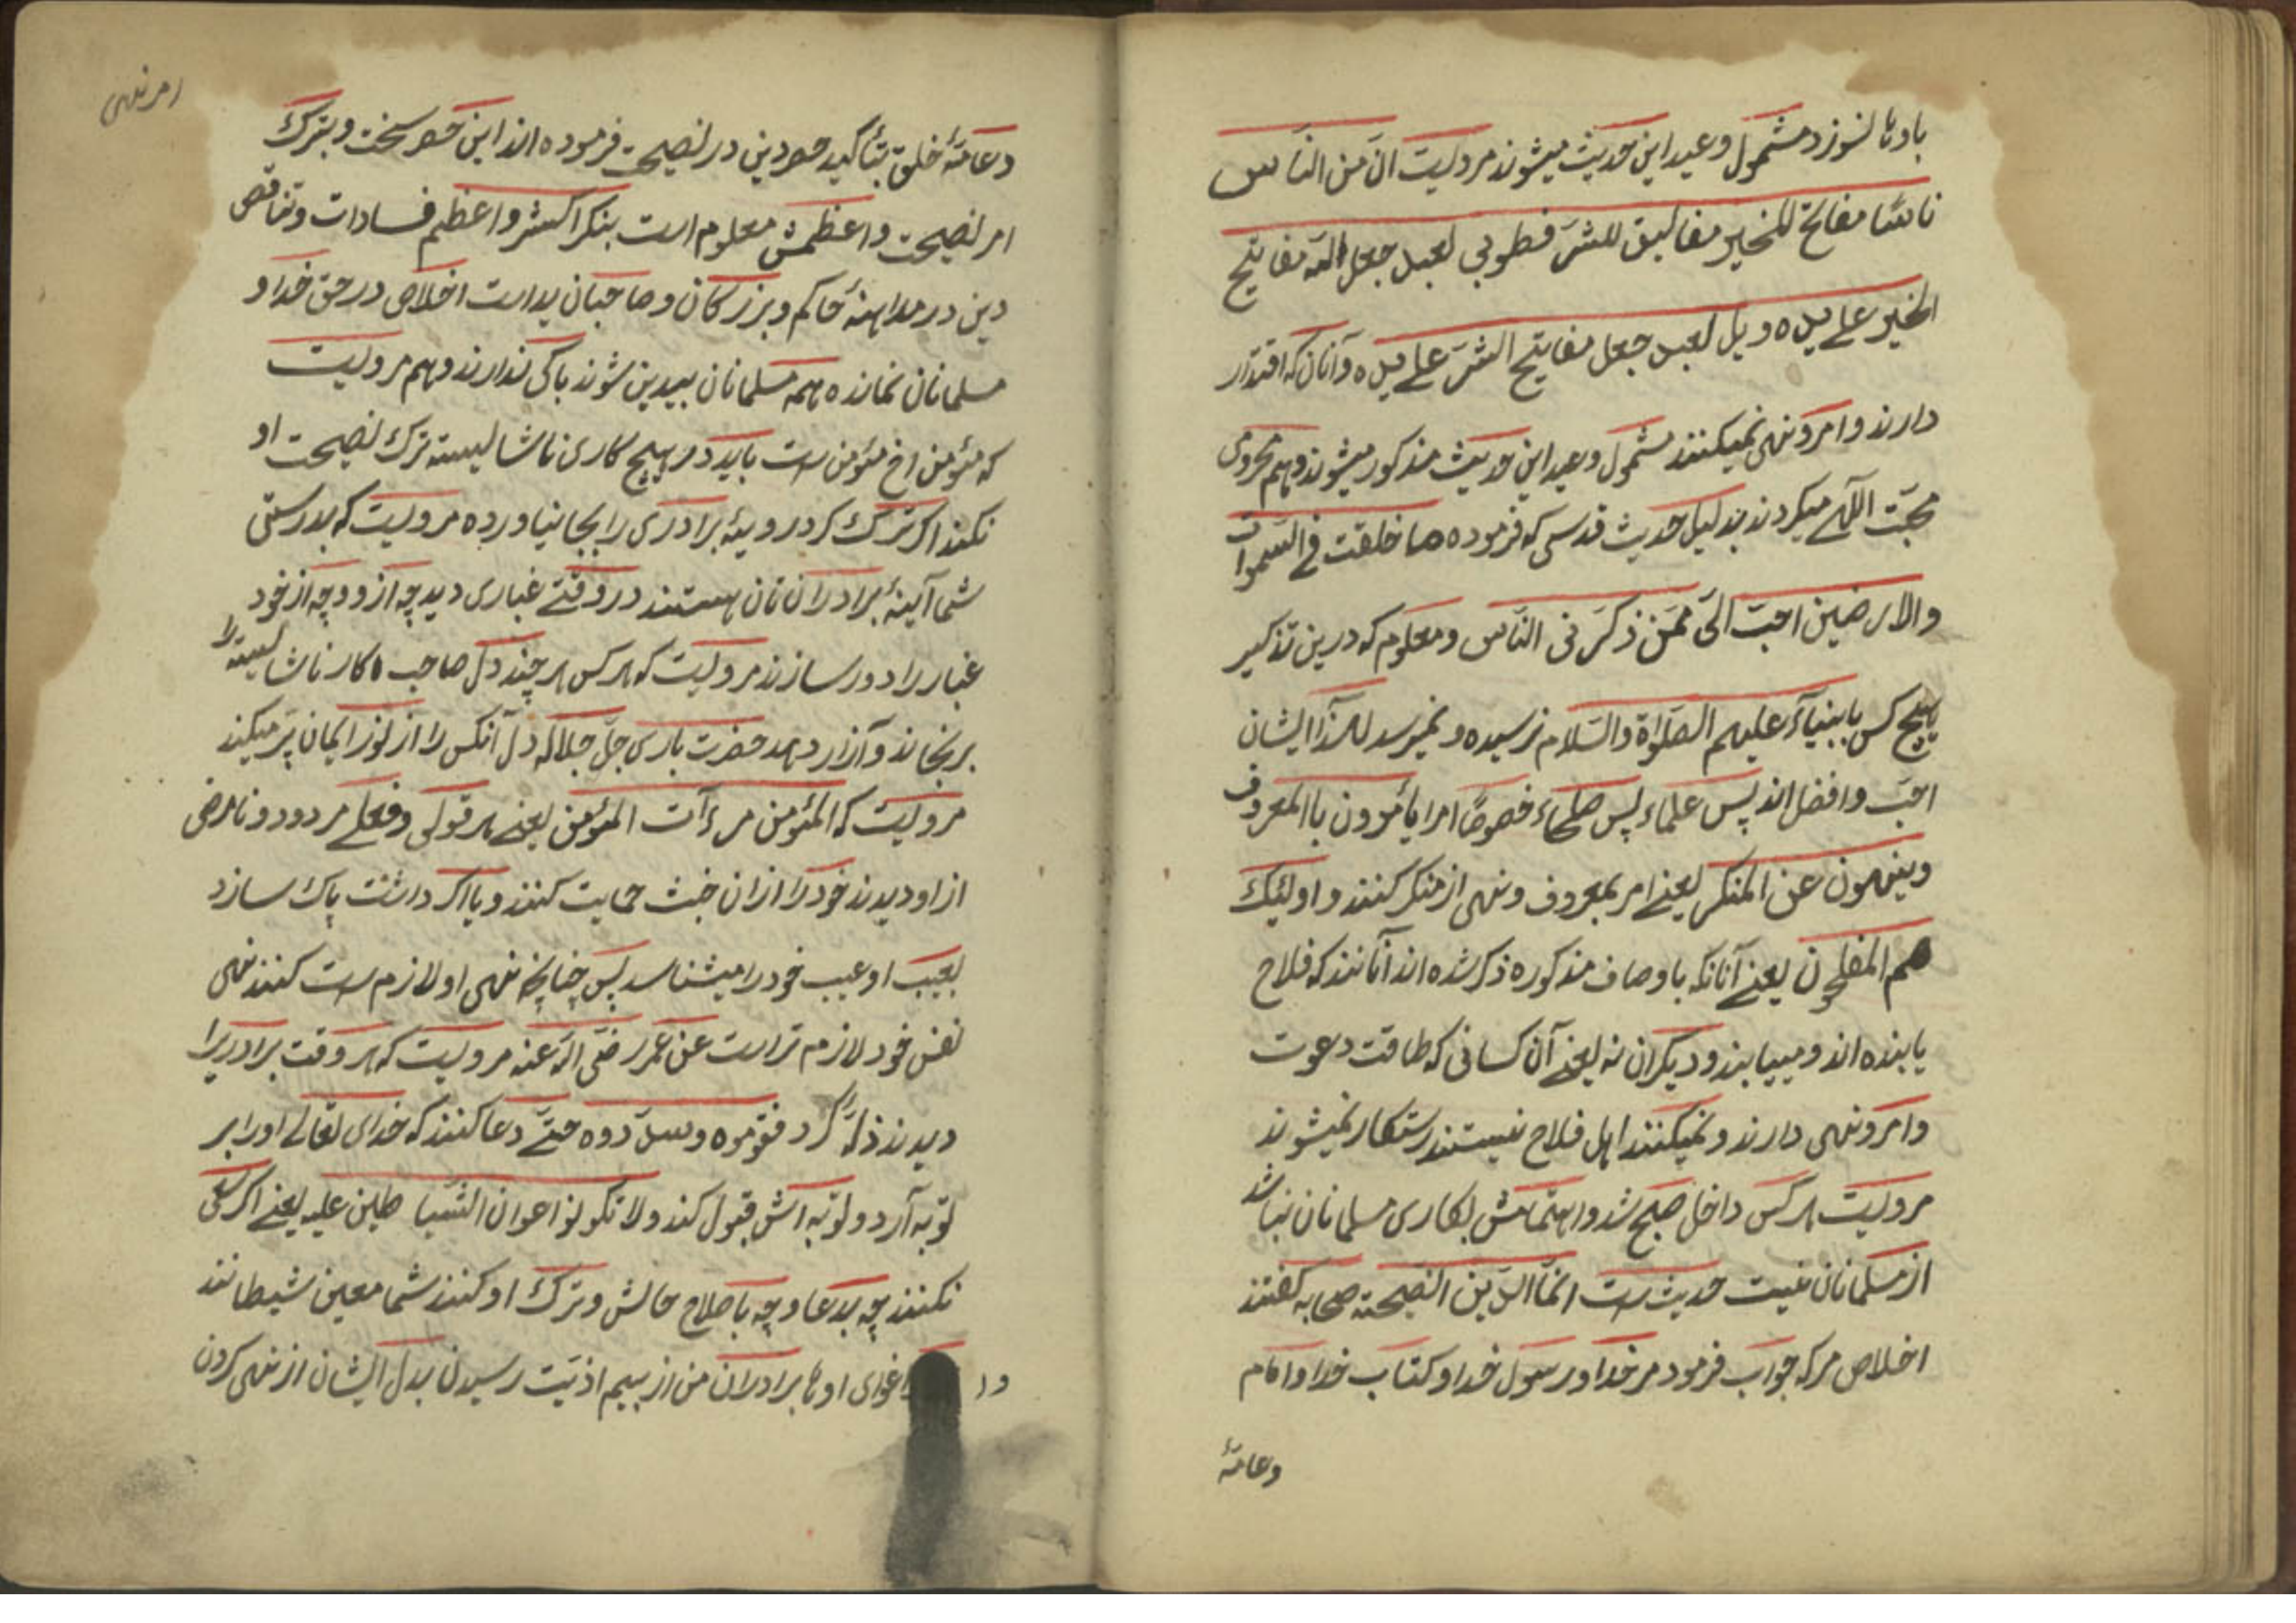 باوها نسوزد مشمول وعید این حدیث میشوند مرویست انّ من النّاس
ناسًا مفاتح للخیر مغالیق للشّر فطوبی لعبد جعل الله مفاتیح
الخیر علی یده ویل لعبد جعل مفاتیح الشّر علی یده وآنان که اقتدار
دارند وامر ونهی نمیکنند مشمول وعید این حدیث مذکور میشوند وهم محروم
محبّت اللّهی میکردند بدلیل حدیث قدسی که فرموده ما خلقت فی السّموات
والارضین احبّ الیّ ممّن ذکّرنی النّاس ومعلوم که درین تذکیر
هیچ کس بانبیآء علیهم الصّلوة والسّلام نرسیده ونمیرسد لهذا ایشان
احبّ وافضل اند پس علماء پس صلحاء خصوصًا امرا یأمرون باالمعروف
وینهون عن المنکر یعنی امر بمعروف ونهی از منکر کنند واولئیک
هم المفلحون یعنی آنانکه باوصاف مذکوره ذکر شده اند آنانند که فلاح
یابنده اند ومییابند ودیکران نه یعنی آن کسانی که طاقت دعوت
وامر ونهی دارند ونمیکنند اهل فلاح نیستند رستکار نمیشوند
مرویست هر کس داخل صبح شد واهتمامش بکاری مسلمانان نباشد
از مسلمانان نیست حدیث است انّما الدّین النّصیحة صحابه کفتند
اخلاص مر که جواب فرمود مر خدا ورسول خدا وکتاب خدا وامام
وعامّهٔ
امر نهی
وعامّهٔ خلق بتأکید حصر دین در نصیحت فرموده اند این حصر سخت وبترک
امر نصیحت واعظمش معلوم است بنکر اکثر واعظم فسادات وتناقص
دین در مداهنهٔ حاکم وبزرکان وصاحبان یداست اخلاص در حق خدا و
مسلمانان نمانده همه مسلمانان بیدین شوند باکی ندارند وهم مرویست
که مئومن اخ مئومن است باید در هیچ کاری ناشایسته ترک نصیحت او
نکنند اکر ترک کرد رویهٔ برادری را بجا نیاورده مرویست که بدرستی
شما آئینهٔ برادران تان هستند در وقتی غباری دید چه از و وچه از خود
غبار را دور سازند مرویست که هر کس هر چند دل صاحب کار ناشایسته را
برنجاند وآزار دهد حضرت باری جلّ جلاله دل آنکس را از نور ایمان پر میکند
مرویست که المئومن مرءآت المئومن یعنی هر قولی وفعلی مردود ونامرضی
از او دیدند خود را از ان خبث حمایت کنند ویا اکر داشت پاک سازد
بعیب او عیب خود را میشناسد پس چنانچه نهی او لازم است کنند نهی
نفس خود لازم تر است عن عمر رضی الله عنه مرویست که هر وقت برادریرا
دیدند ذلّة کرد فقوموه وسدّدوه حتّی دعا کنند که خدای تعالی او را بر
توبه آرد وتوبه اش قبول کند ولا تکونوا اعوان الشّیاطین علیه یعنی اکر سعی
نکنند چه بدعا وچه باصلاح حالش وترک او کنند شما معین شیطانند
در اغوای او ها برادران من از بیم اذیّت رسیدن بدل ایشان از نهی کردن